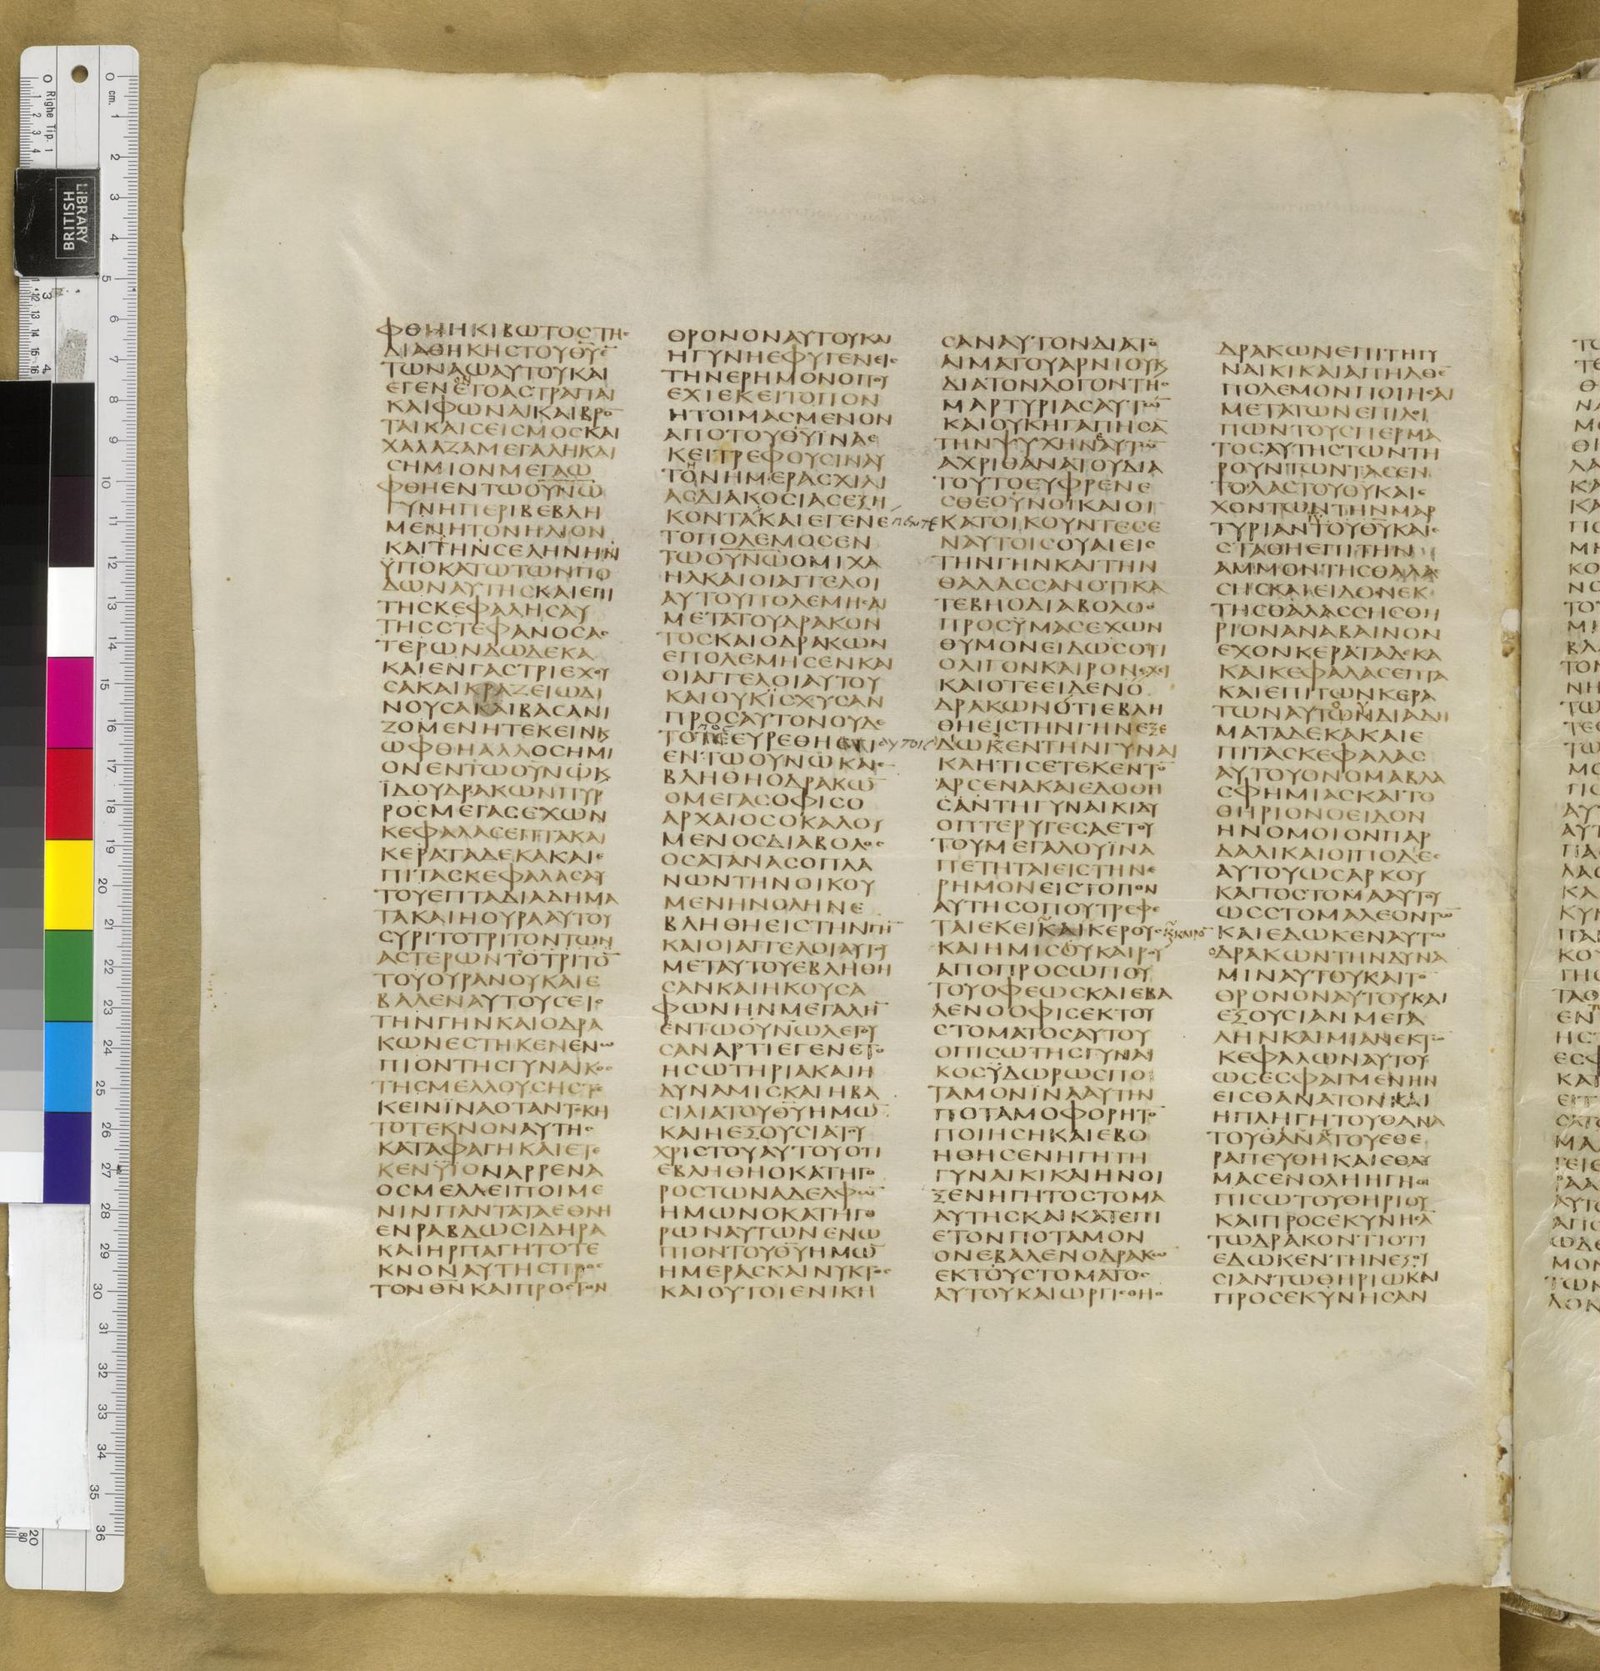 ΦΘΗΗΚΙΒΩΤΟΣΤΗΣ
ΔΙΑΘΗΚΗΣΤΟΥΘΥΕ
ΤΩΝΑΩΑΥΤΟΥΚΑΙ
ΚΑΙΦΩΝΑΙΚΑΙΒΡΟ
ΤΑΙΚΑΙΣΕΙΣΜΟΣΚΑΙ
ΧΑΛΑΖΑΜΕΓΑΛΗΚΑΙ
ΣΗΜΙΟΝΜΕΓΑΩ
ΦΘΗΕΝΤΩΟΥΝΩ
ΓΥΝΗΠΕΡΙΒΕΒΛΗ
ΜΕΝΗΤΟΝΗΛΙΟΝ
ΚΑΙΤΗΝΣΕΛΗΝΗΝ
ΥΠΟΚΑΤΩΤΩΝΠΟ
ΔΩΝΑΥΤΗΣΚΑΙΕΠΙ
ΤΗΣΚΕΦΑΛΗΣΑΥ
ΤΗΣΣΤΕΦΑΝΟΣΑΣ
ΤΕΡΩΝΔΩΔΕΚΑ
ΚΑΙΕΝΓΑΣΤΡΙΕΧΟΥ
ΣΑΚΑΙΚΡΑΖΕΙΩΔΙ
ΝΟΥΣΑΚΑΙΒΑΣΑΝΙ
ΖΟΜΕΝΗΤΕΚΕΙΝΚ
ΩΦΘΗΑΛΛΟΣΗΜΙ
ΟΝΕΝΤΩΟΥΝΩΚ
ΪΔΟΥΔΡΑΚΩΝΠΥΡ
ΡΟΣΜΕΓΑΣΕΧΩΝ
ΚΕΦΑΛΑΣΕΠΤΑΚΑΙ
ΚΕΡΑΤΑΔΕΚΑΚΑΙΕ
ΠΙΤΑΣΚΕΦΑΛΑΣΑΥ
ΤΟΥΕΠΤΑΔΙΑΔΗΜΑ
ΤΑΚΑΙΗΟΥΡΑΑΥΤΟΥ
ΣΥΡΙΤΟΤΡΙΤΟΝΤΩΝ
ΑΣΤΕΡΩΝΤΟΤΡΙΤΟ
ΤΟΥΟΥΡΑΝΟΥΚΑΙΕ
ΒΑΛΕΝΑΥΤΟΥΣΕΙΣ
ΤΗΝΓΗΝΚΑΙΟΔΡΑ
ΚΩΝΕΣΤΗΚΕΝΕΝΩ
ΠΙΟΝΤΗΣΓΥΝΑΙΚΟΣ
ΤΗΣΜΕΛΛΟΥΣΗΣΤΕ
ΚΕΙΝΪΝΑΟΤΑΝΤΕΚΗ
ΤΟΤΕΚΝΟΝΑΥΤΗΣ
ΚΑΤΑΦΑΓΗΚΑΙΕΤΕ
ΚΕΝΥΙΟΝΑΡΡΕΝΑ
ΟΣΜΕΛΛΕΙΠΟΙΜΕ
ΝΙΝΠΑΝΤΑΤΑΕΘΝΗ
ΕΝΡΑΒΔΩΣΙΔΗΡΑ
ΚΑΙΗΡΠΑΓΗΤΟΤΕ
ΚΝΟΝΑΥΤΗΣΠΡΟΣ
ΤΟΝΘΝΚΑΙΠΡΟΣΤΟΝ
ΘΡΟΝΟΝΑΥΤΟΥΚΑΙ
ΗΓΥΝΗΕΦΥΓΕΝΕΙΣ
ΤΗΝΕΡΗΜΟΝΟΠΟΥ
ΕΧΙΕΚΕΙΤΟΠΟΝ
ΗΤΟΙΜΑΣΜΕΝΟΝ
ΑΠΟΤΟΥΘΥΪΝΑΕ
ΚΕΙΤΡΕΦΟΥΣΙΝΑΥ
ΤΟΝΗΜΕΡΑΣΧΙΛΙ
ΑΣΔΙΑΚΟΣΙΑΣΕΞΗ
ΚΟΝΤΑΚΑΙΕΓΕΝΕ πεντε
ΤΟΠΟΛΕΜΟΣΕΝ
ΤΩΟΥΝΩΟΜΙΧΑ
ΗΛΚΑΙΟΙΑΓΓΕΛΟΙ
ΑΥΤΟΥΠΟΛΕΜΗΣΑΙ
ΜΕΤΑΤΟΥΔΡΑΚΟΝ
ΤΟΣΚΑΙΟΔΡΑΚΩΝ
ΕΠΟΛΕΜΗΣΕΝΚΑΙ
ΟΙΑΓΓΕΛΟΙΑΥΤΟΥ
ΚΑΙΟΥΚΪΣΧΥΣΑΝ
ΠΡΟΣΑΥΤΟΝΟΥΔΕ
ΕΝΤΩΟΥΝΩΚΑΙΕ
ΒΛΗΘΗΟΔΡΑΚΩ
ΟΜΕΓΑΣΟΦΙΣΟ
ΑΡΧΑΙΟΣΟΚΑΛΟΥ
ΜΕΝΟΣΔΙΑΒΟΛΟΣ
ΟΣΑΤΑΝΑΣΟΠΛΑ
ΝΩΝΤΗΝΟΙΚΟΥ
ΜΕΝΗΝΟΛΗΝΕ
ΒΛΗΘΗΕΙΣΤΗΝΓΗ
ΚΑΙΟΙΑΓΓΕΛΟΙΑΥΤΟΥ
ΜΕΤΑΥΤΟΥΕΒΛΗΘΗ
ΣΑΝΚΑΙΗΚΟΥΣΑ
ΦΩΝΗΝΜΕΓΑΛΗ
ΕΝΤΩΟΥΝΩΛΕΓΟΥ
ΣΑΝΑΡΤΙΕΓΕΝΕΤΟ
ΗΣΩΤΗΡΙΑΚΑΙΗ
ΔΥΝΑΜΙΣΚΑΙΗΒΑ
ΣΙΛΙΑΤΟΥΘΥΗΜΩ
ΚΑΙΗΕΞΟΥΣΙΑΤΟΥ
ΧΡΙΣΤΟΥΑΥΤΟΥΟΤΙ
ΕΒΛΗΘΗΟΚΑΤΗΓΟ
ΡΟΣΤΩΝΑΔΕΛΦΩ
ΗΜΩΝΟΚΑΤΗΓΟ
ΡΩΝΑΥΤΩΝΕΝΩ
ΠΙΟΝΤΟΥΘΥΗΜΩ
ΗΜΕΡΑΣΚΑΙΝΥΚΤΟΣ
ΚΑΙΟΥΤΟΙΕΝΙΚΗ
ΣΑΝΑΥΤΟΝΔΙΑΤΟ
ΑΙΜΑΤΟΥΑΡΝΙΟΥΚ
ΔΙΑΤΟΝΛΟΓΟΝΤΗΣ
ΜΑΡΤΥΡΙΑΣΑΥΤΩ
ΚΑΙΟΥΚΗΓΑΠΗΣΑ
ΤΗΝΨΥΧΗΝΑΥΤΩ
ΑΧΡΙΘΑΝΑΤΟΥΔΙΑ
ΤΟΥΤΟΕΥΦΡΕΝΕ
ΣΘΕΟΥΝΟΙΚΑΙΟΙ
ΚΑΤΟΙΚΟΥΝΤΕΣΕ
ΝΑΥΤΟΙΣΟΥΑΙΕΙΣ
ΤΗΝΓΗΝΚΑΙΤΗΝ
ΘΑΛΑΣΣΑΝΟΤΙΚΑ
ΤΕΒΗΟΔΙΑΒΟΛΟΣ
ΠΡΟΣΫΜΑΣΕΧΩΝ
ΘΥΜΟΝΕΙΔΩΣΟΤΙ
ΟΛΙΓΟΝΚΑΙΡΟΝΕΧΕΙ
ΚΑΙΟΤΕΕΙΔΕΝΟ
ΔΡΑΚΩΝΟΤΙΕΒΛΗ
ΘΗΕΙΣΤΗΝΓΗΝΕΞΕ
ΔΩΚΕΝΤΗΝΓΥΝΑΙ
ΚΑΗΤΙΣΕΤΕΚΕΝΤΟ
ΑΡΣΕΝΑΚΑΙΕΔΟΘΗ
ΣΑΝΤΗΓΥΝΑΙΚΙΑΥ
ΟΠΤΕΡΥΓΕΣΑΕΤΟΥ
ΤΟΥΜΕΓΑΛΟΥΪΝΑ
ΠΕΤΗΤΑΙΕΙΣΤΗΝΕ
ΡΗΜΟΝΕΙΣΤΟΠΟΝ
ΑΥΤΗΣΟΠΟΥΤΡΕΦΕ
ΤΑΙΕΚΕΙΚΑΙΚΕΡΟΥΣ
ΚΑΙΗΜΙΣΟΥΚΑΙΡΟΥ
ΑΠΟΠΡΟΣΩΠΟΥ
ΤΟΥΟΦΕΩΣΚΑΙΕΒΑ
ΛΕΝΟΟΦΙΣΕΚΤΟΥ
ΣΤΟΜΑΤΟΣΑΥΤΟΥ
ΟΠΙΣΩΤΗΣΓΥΝΑΙ
ΚΟΣΫΔΩΡΩΣΠΟ
ΤΑΜΟΝΪΝΑΑΥΤΗΝ
ΠΟΤΑΜΟΦΟΡΗΤΟ
ΠΟΙΗΣΗΚΑΙΕΒΟ
ΗΘΗΣΕΝΗΓΗΤΗ
ΓΥΝΑΙΚΙΚΑΙΗΝΟΙ
ΞΕΝΗΓΗΤΟΣΤΟΜΑ
ΑΥΤΗΣΚΑΙΚΑΤΕΠΙ
ΕΤΟΝΠΟΤΑΜΟΝ
ΟΝΕΒΑΛΕΝΟΔΡΑΚΩ
ΕΚΤΟΥΣΤΟΜΑΤΟΣ
ΑΥΤΟΥΚΑΙΩΡΓΙΣΘΗΟ
ΔΡΑΚΩΝΕΠΙΤΗΓΥ
ΝΑΙΚΙΚΑΙΑΠΗΛΘΕ
ΠΟΛΕΜΟΝΠΟΙΗΣΑΙ
ΜΕΤΑΤΩΝΕΠΙΛΟΙ
ΠΩΝΤΟΥΣΠΕΡΜΑ
ΤΟΣΑΥΤΗΣΤΩΝΤΗ
ΡΟΥΝΤΩΝΤΑΣΕΝ
ΤΟΛΑΣΤΟΥΘΥΚΑΙΕ
ΧΟΝΤΩΝΤΗΝΜΑΡ
ΤΥΡΙΑΝΤΟΥΘΥΚΑΙΕ
ΣΤΑΘΗΕΠΙΤΗΝ
ΑΜΜΟΝΤΗΣΘΑΛΑ
ΣΗΣΚΑΙΕΙΔΟΝΕΚ
ΤΗΣΘΑΛΑΣΣΗΣΘΗ
ΡΙΟΝΑΝΑΒΑΙΝΟΝ
ΕΧΟΝΚΕΡΑΤΑΔΕΚΑ
ΚΑΙΚΕΦΑΛΑΣΕΠΤΑ
ΚΑΙΕΠΙΤΩΝΚΕΡΑ
ΤΩΝΑΥΤΩΝΔΙΑΔΗ
ΜΑΤΑΔΕΚΑΚΑΙΕ
ΠΙΤΑΣΚΕΦΑΛΑΣ
ΑΥΤΟΥΟΝΟΜΑΒΛΑ
ΣΦΗΜΙΑΣΚΑΙΤΟ
ΘΗΡΙΟΝΟΕΙΔΟΝ
ΗΝΟΜΟΙΟΝΠΑΡ
ΔΑΛΙΚΑΙΟΙΠΟΔΕΣ
ΑΥΤΟΥΩΣΑΡΚΟΥ
ΚΑΙΤΟΣΤΟΜΑΑΥΤΟΥ
ΩΣΣΤΟΜΑΛΕΟΝΤΩ
ΚΑΙΕΔΩΚΕΝΑΥΤΩ
ΟΔΡΑΚΩΝΤΗΝΔΥΝΑ
ΜΙΝΑΥΤΟΥΚΑΙΤΟ
ΘΡΟΝΟΝΑΥΤΟΥΚΑΙ
ΕΞΟΥΣΙΑΝΜΕΓΑ
ΛΗΝΚΑΙΜΙΑΝΕΚΤΩ
ΚΕΦΑΛΩΝΑΥΤΟΥ
ΩΣΕΣΦΑΓΜΕΝΗΝ
ΕΙΣΘΑΝΑΤΟΝΚΑΙ
ΗΠΛΗΓΗΤΟΥΘΑΝΑ
ΤΟΥΘΑΝΑΤΟΥΕΘΕ
ΡΑΠΕΥΘΗΚΑΙΕΘΑΥ
ΜΑΣΕΝΟΛΗΗΓΗΟ
ΠΙΣΩΤΟΥΘΗΡΙΟΥ
ΚΑΙΠΡΟΣΕΚΥΝΗΣΑ
ΤΩΔΡΑΚΟΝΤΙΟΤΙ
ΕΔΩΚΕΝΤΗΝΕΞΟΥ
ΣΙΑΝΤΩΘΗΡΙΩΚΑΙ
ΠΡΟΣΕΚΥΝΗΣΑΝ
BRITISH
LIBRARY